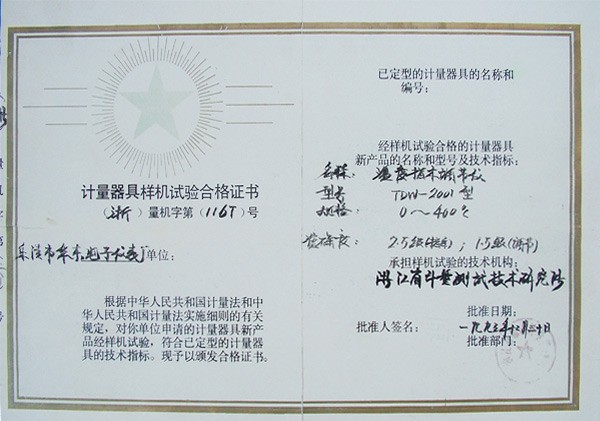 计量器具样机试验合格证书
（浙）量机字第（116T）号
乐清市华东电子仪表厂单位：
根据中华人民共和国计量法和中
华人民共和国计量法实施细则的有关
规定，对你单位申请的计量器具新产
品经样机试验，符合已定型的计量器
具的技术指标。现予以颁发合格证书。
已定型的计量器具的名称和
编号：
经样机试验合格的计量器具
新产品的名称和型号及技术指标：
名称 温度指示调节仪
型号 TDW-2001型
规格： 0～400℃
准确度： 2.5级(指示)；1.5级(调节)
承担样机试验的技术机构：
浙江省计量测试技术研究所
批准日期：
批准人签名： 一九九三年十二月三十日
批准部门：